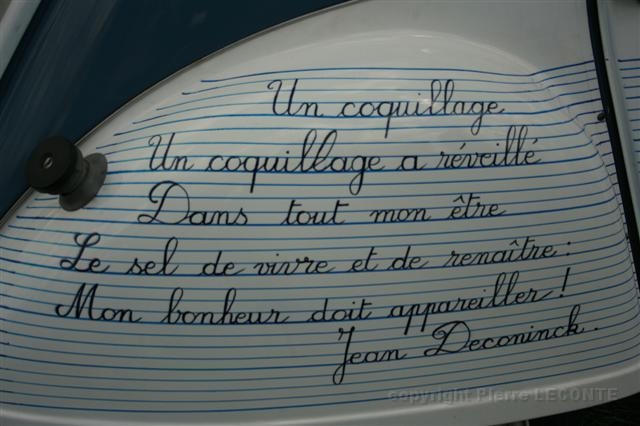 Un coquillage
Un coquillage a réveillé
Dans tout mon être
Le sel de vivre et de renaître :
Mon bonheur doit appareiller !
Jean Deconinck.
copyright Pierre LECONTE